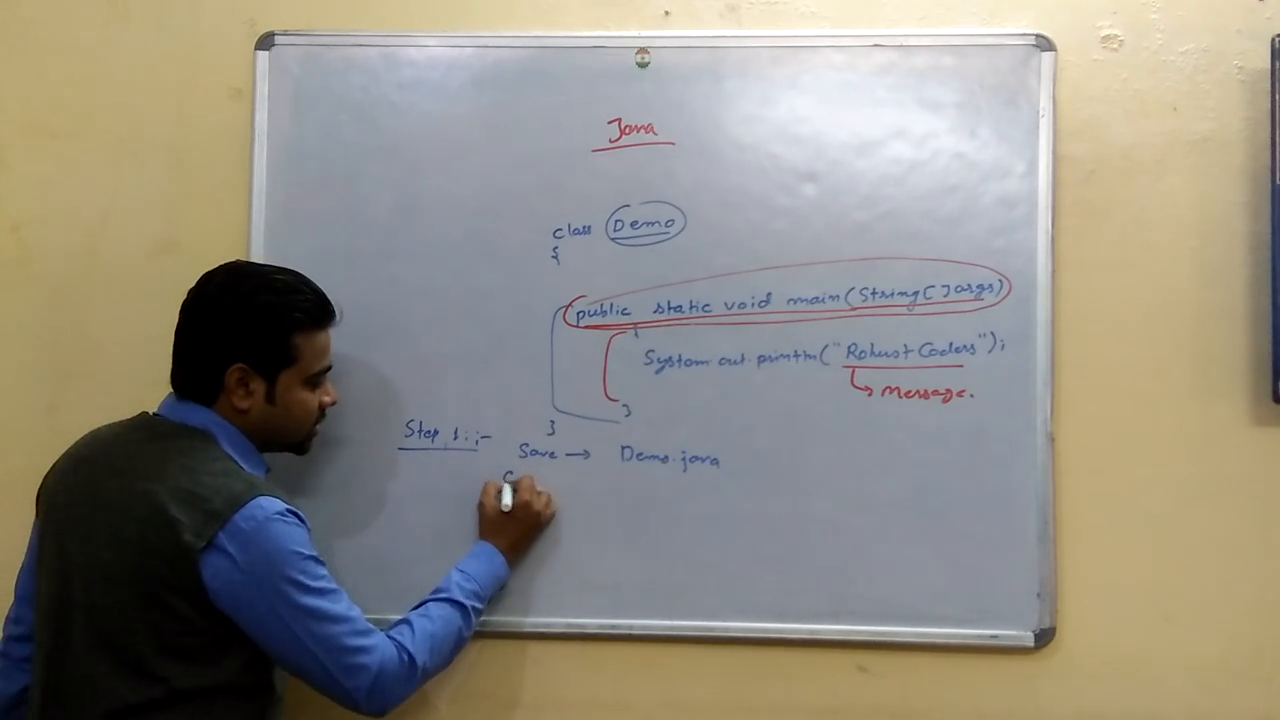 Java
class Demo
{
public static void main(String[] args)
{
System.out.println("Robust Coders");
Message.
}
}
Step 1:;-
Save → Demo.java
C